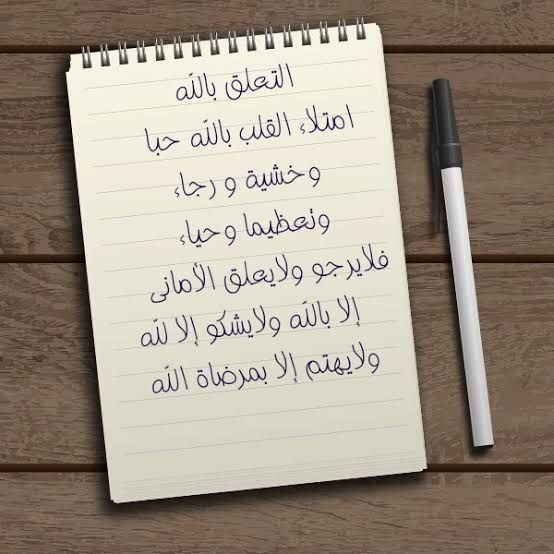 التعلق بالله
امتلاء القلب بالله حبا
وخشية ورجاء
وتعظيما وحياء
فلايرجو ولايعلق الأمانى
إلا بالله ولايشكو إلا لله
ولايهتم إلا بمرضاة الله